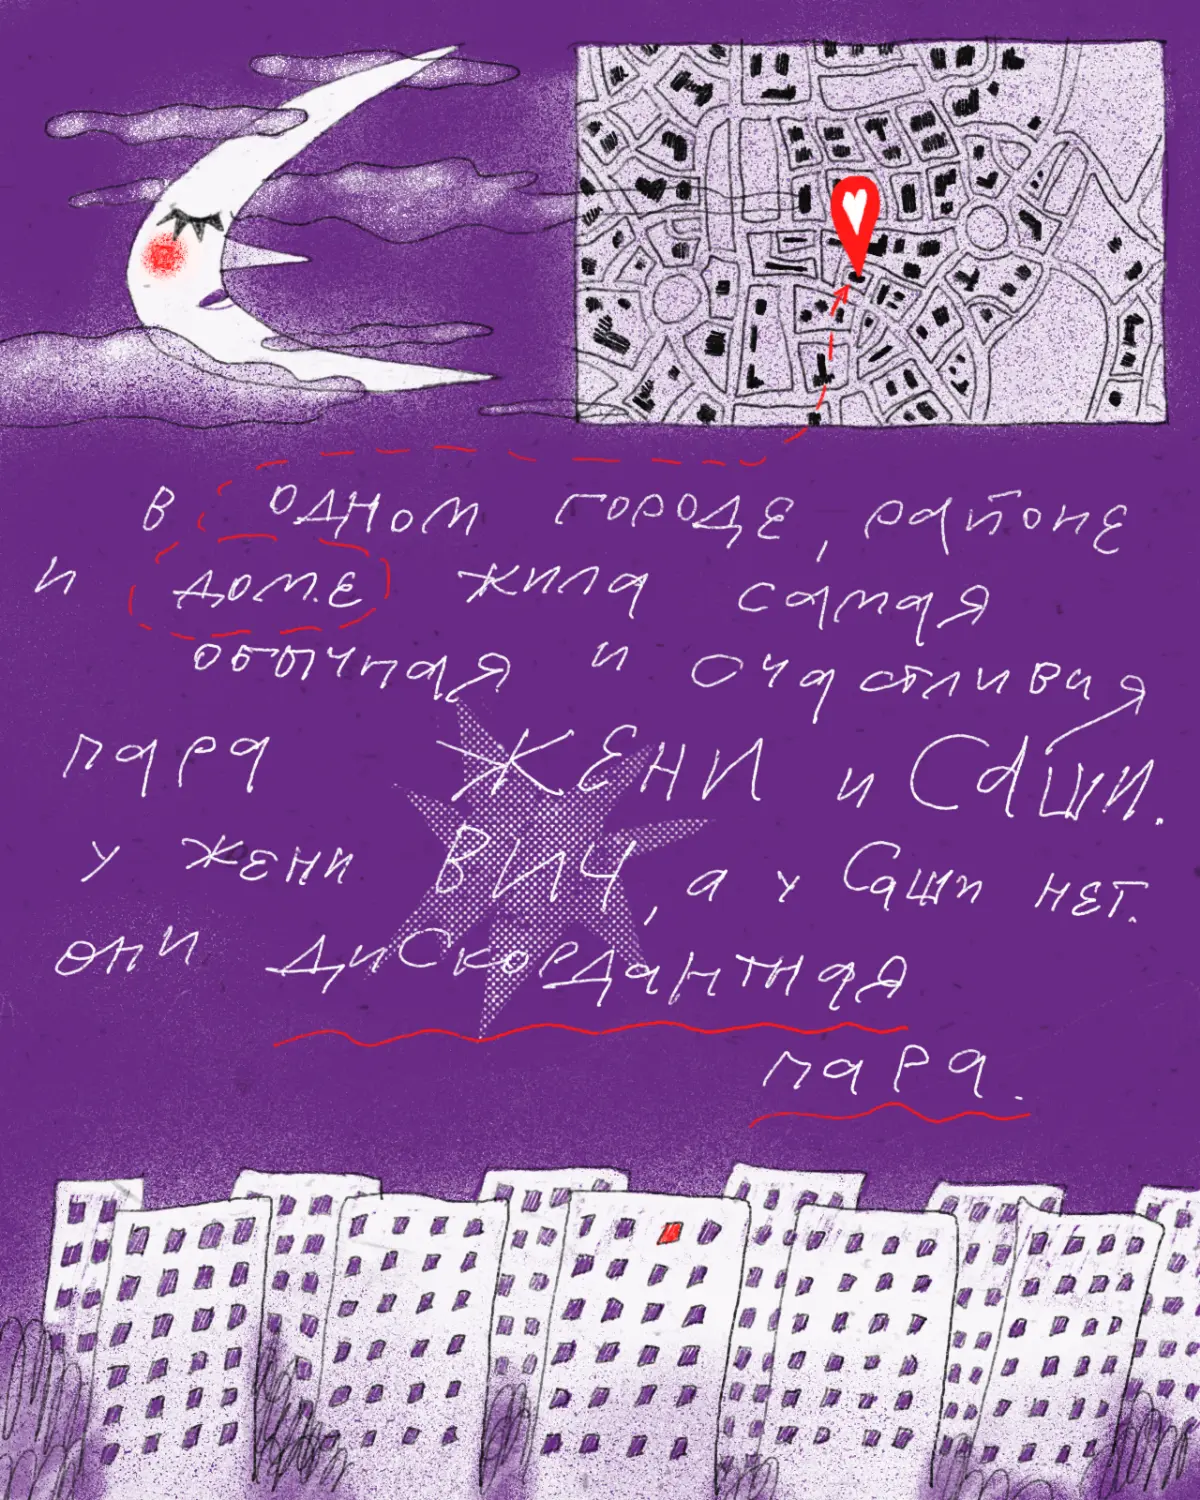 в одном городе, районе
и доме жила самая
обычная и счастливая
пара ЖЕНИ и САШИ.
у жени ВИЧ, а у Саши нет.
они дискордантная
пара.